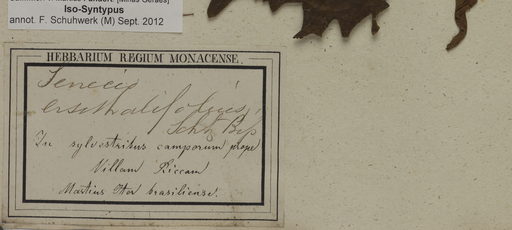 Iso-Syntypus
annot. F. Schuhwerk (M) Sept. 2012
HERBARIUM REGIUM MONACENSE.
Senecio
erisithalifolius,
Schtz Bip
In sylvestribus camporum prope
Villam Riccam
Martius Iter brasiliense.